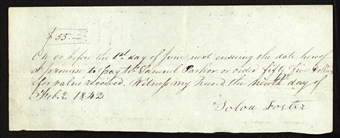 $55—
On or before the 1st day of June next ensuing the date hereof
I promise to pay Samuel Parker or order fifty five dollars
for value received. Witness my hand the ninth day of
1842
Foster